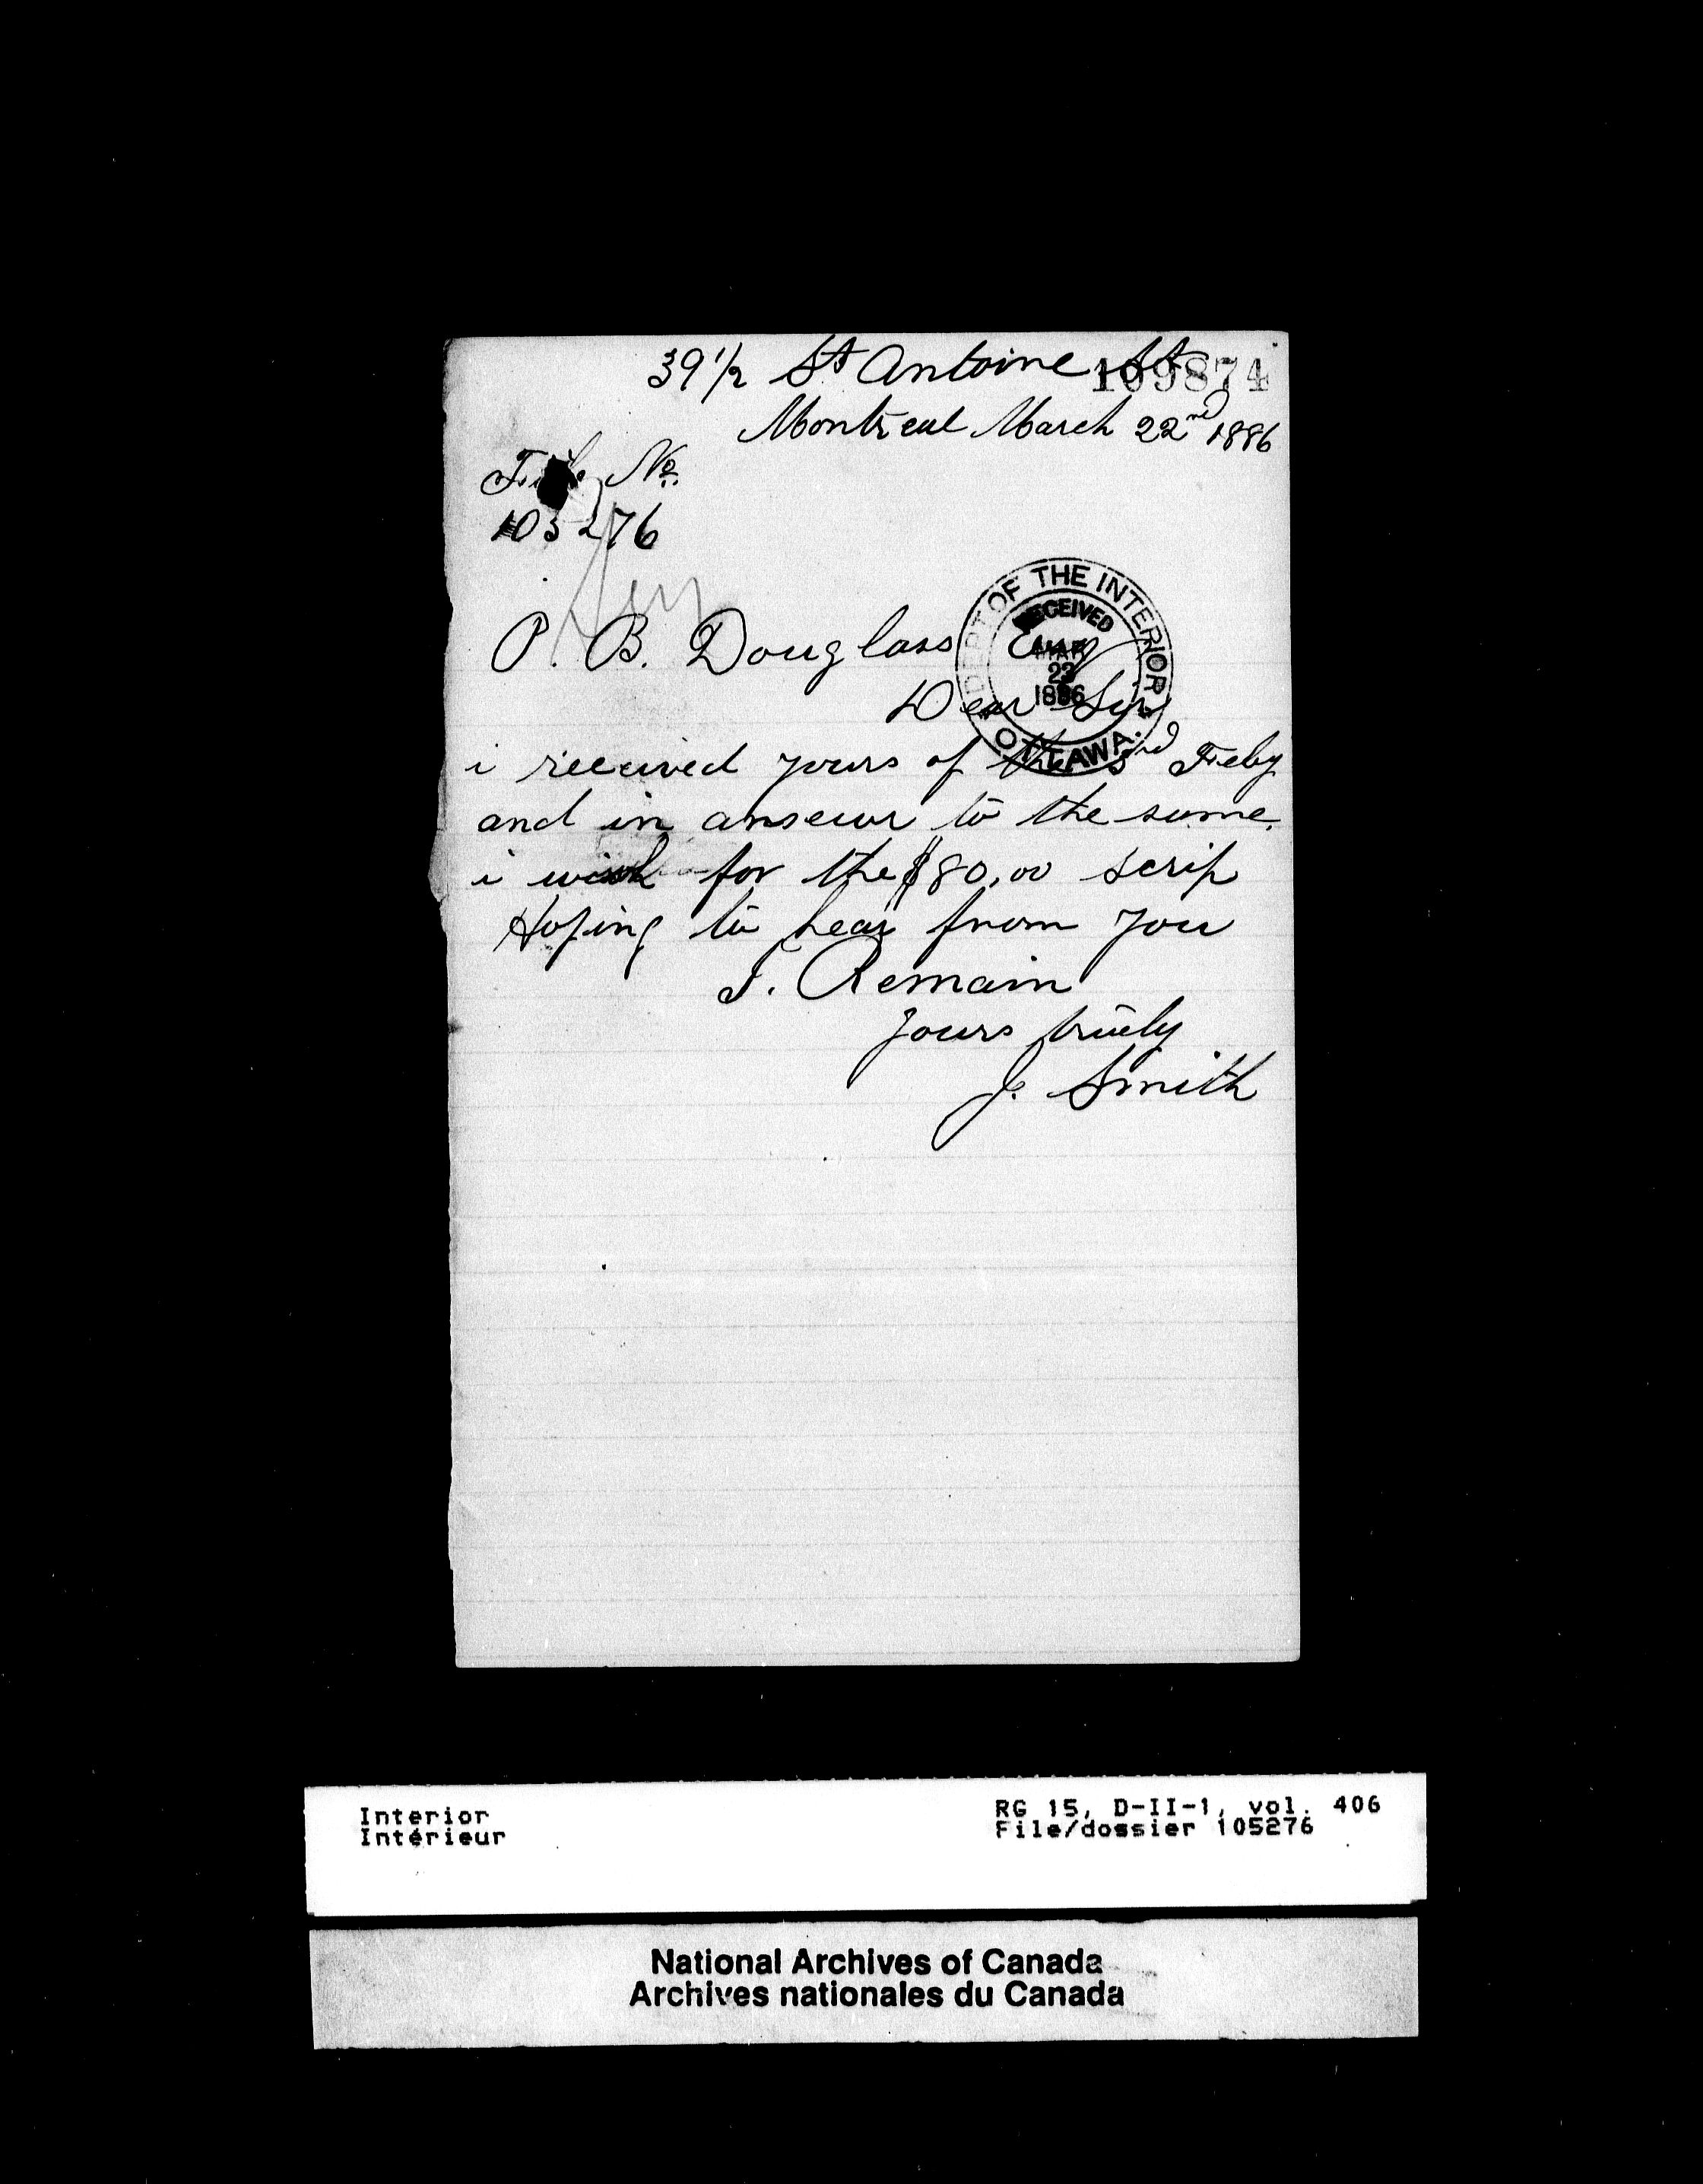 39 1/2 St Antoine St
109874
Montreal March 22nd 1886
File No.
105276
P. B. Douglass Esq
DEPT OF THE INTERIOR
RECEIVED
MAR
23
1886
OTTAWA.
Dear Sir
i received yours of the 3rd Feby
and in anseur to the same.
i wish for the $80.00 scrip
Hoping to hear from you
I. Remain
yours truely
J. Smith
Interior
Intérieur
RG 15, D-II-1, vol. 406
File/dossier 105276
National Archives of Canada
Archives nationales du Canada